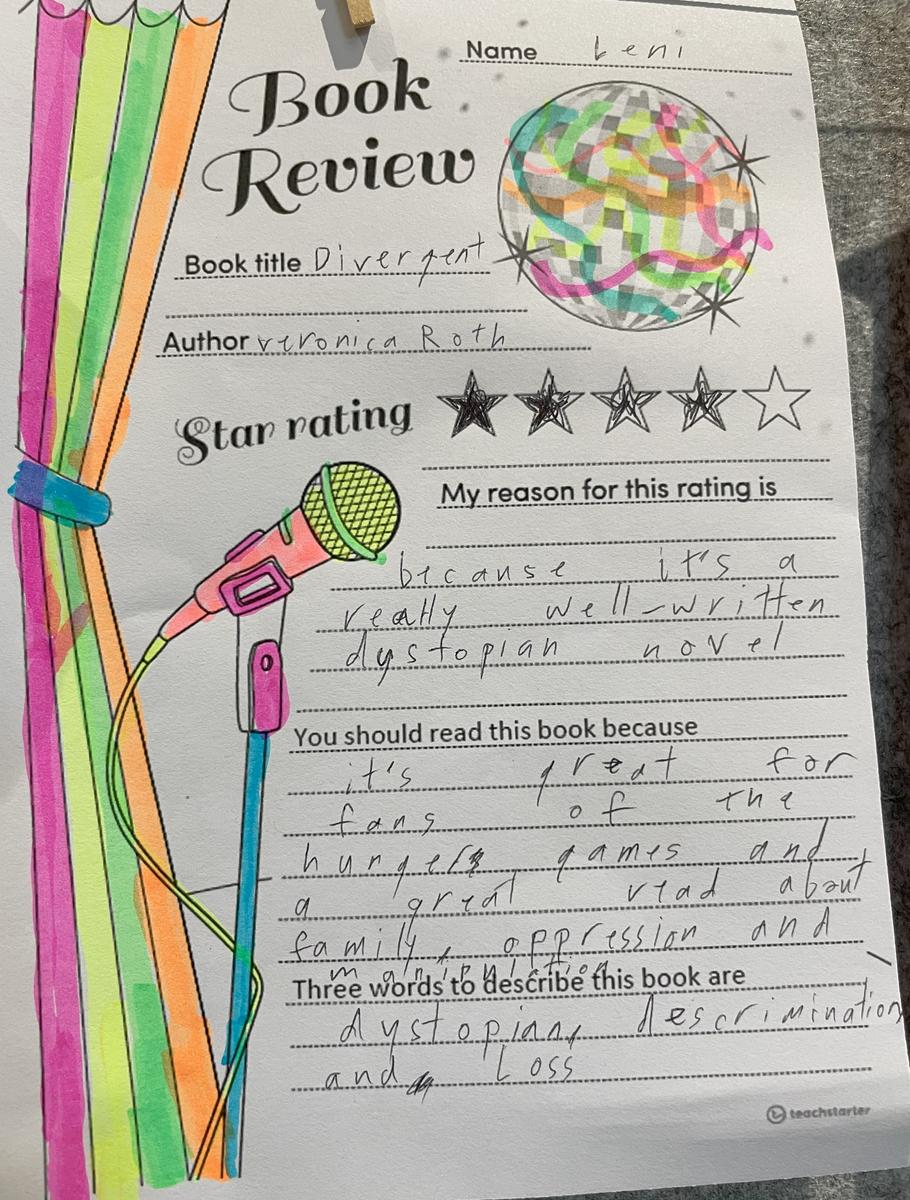 Name Leni
Book
Review
Book title Divergent
Author veronica Roth
Star rating
My reason for this rating is
because it's a
really well-written
dystopian novel
You should read this book because
it's great for
fans of the
hunger games and
a great read about
family, oppression and
manipulation
Three words to describe this book are
dystopian, descrimination
and loss
teachstarter